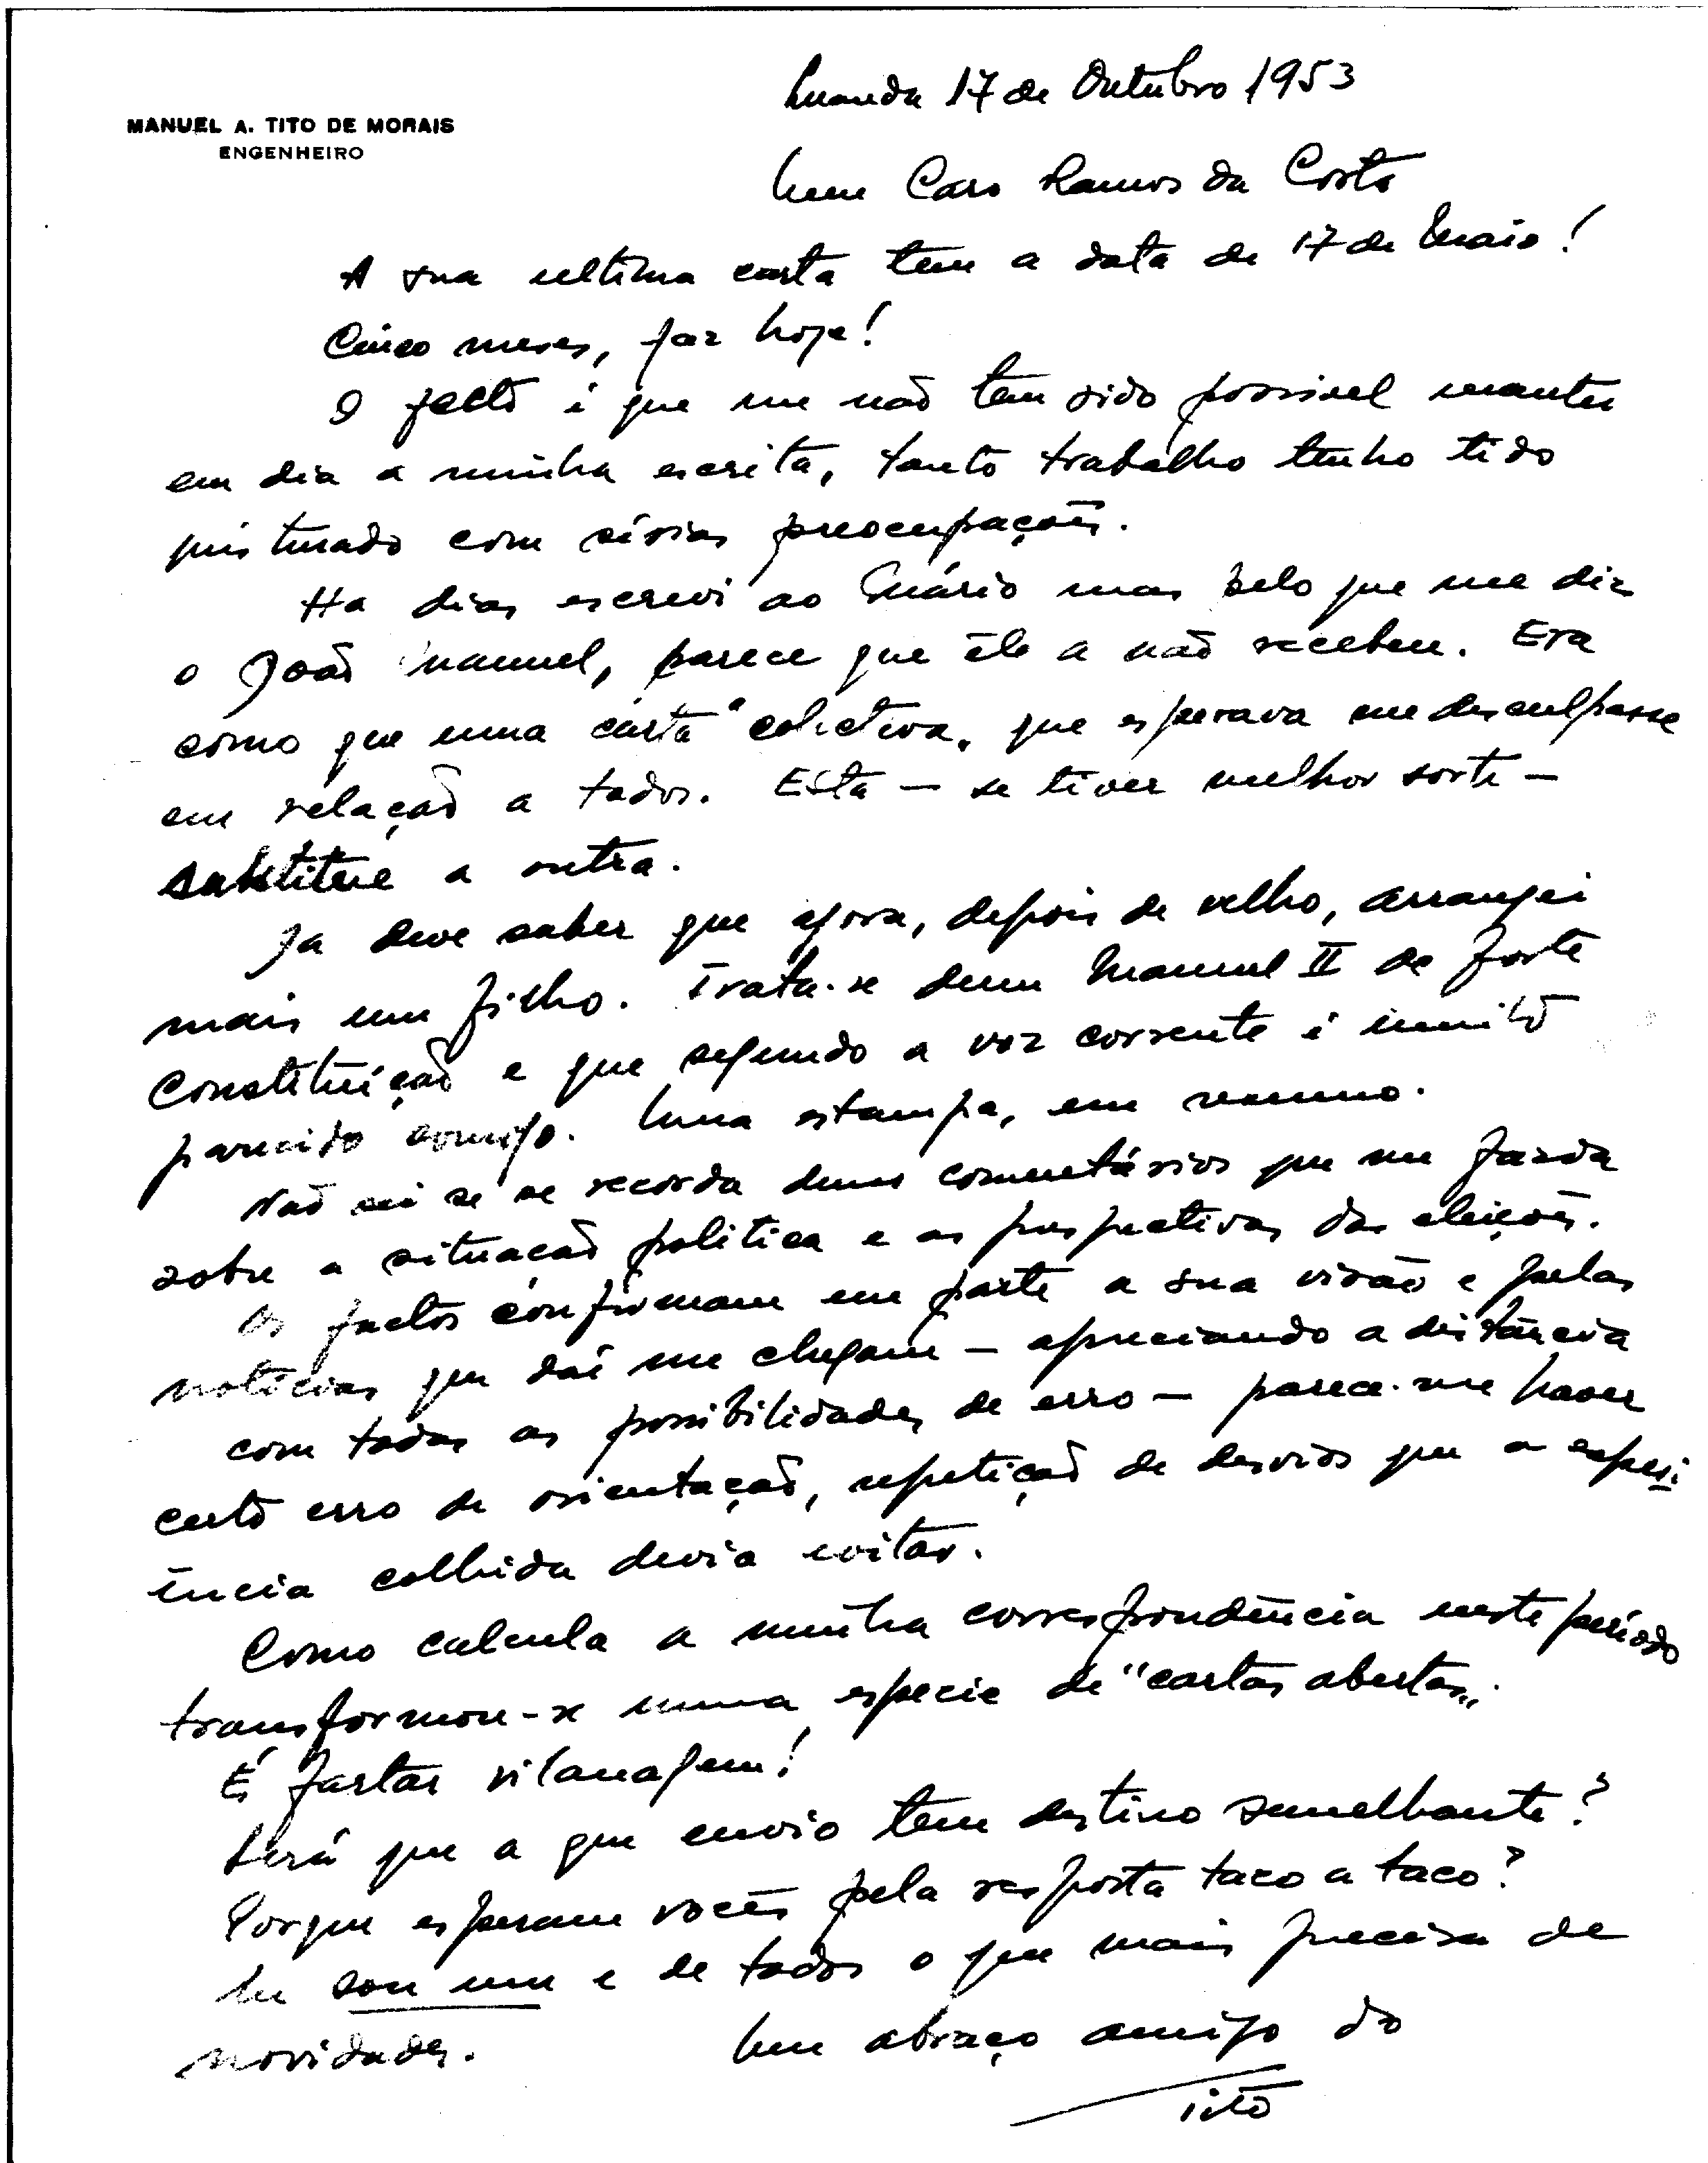 Luanda 17 de Outubro 1953
MANUEL A. TITO DE MORAIS
ENGENHEIRO
Meu Caro Ramos da Costa
A sua ultima carta tem a data de 17 de Maio!
Cinco meses, faz hoje!
O facto é que me não tem sido possivel manter
em dia a minha escrita, tanto trabalho tenho tido
misturado com sérias preocupações.
Ha dias escrevi ao Mário mas pelo que me diz
o João Manuel, parece que êle a não recebeu. Era
como que uma carta "colectiva" que esperava me desculpasse
em relação a todos. Esta — se tiver melhor sorte —
substitue a outra.
Ja deve saber que agora, depois de velho, arranjei
mais um filho. Trata-se dum Manuel II de forte
Constituição e que segundo a voz corrente é muito
parecido comigo. Uma estampa, em resumo.
Não sei se se recorda duns comentários que me fazia
sobre a situação politica e as perspectivas das eleições.
Os factos confirmam em parte a sua visão e pelas
noticias que daí me chegam — apreciando a distância
com todas as possibilidades de erro — parece-me haver
certo erro de orientação, repetição de desvios que a experi
ência colhida devia evitar.
Como calcula a minha correspondência neste período
transformou-se numa especie de "cartas abertas".
É fartar vilanagem!
Será que a que envio tem destino semelhante?
Porque esperam vocês pela resposta taco a taco?
Eu sou um e de todos o que mais precisa de
novidades. Um abraço amigo do
Tito